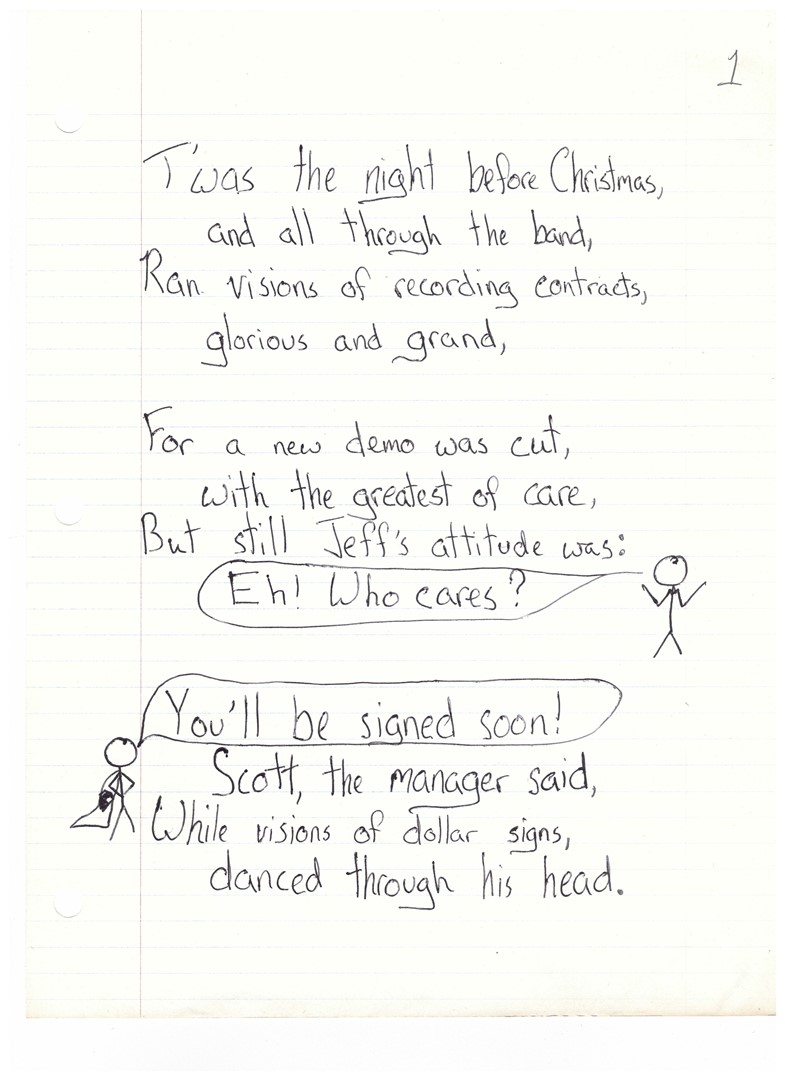 1
T'was the night before Christmas,
and all through the band,
Ran visions of recording contracts,
glorious and grand,
For a new demo was cut,
with the greatest of care,
But still Jeff's attitude was:
Eh! Who cares?
You'll be signed soon!
Scott, the manager said,
While visions of dollar signs,
danced through his head.